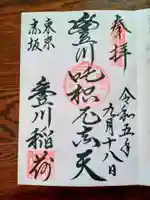 奉拝
令和五年
九月十八日
豊川吒枳尼真天
東京
赤坂
豊川稲荷